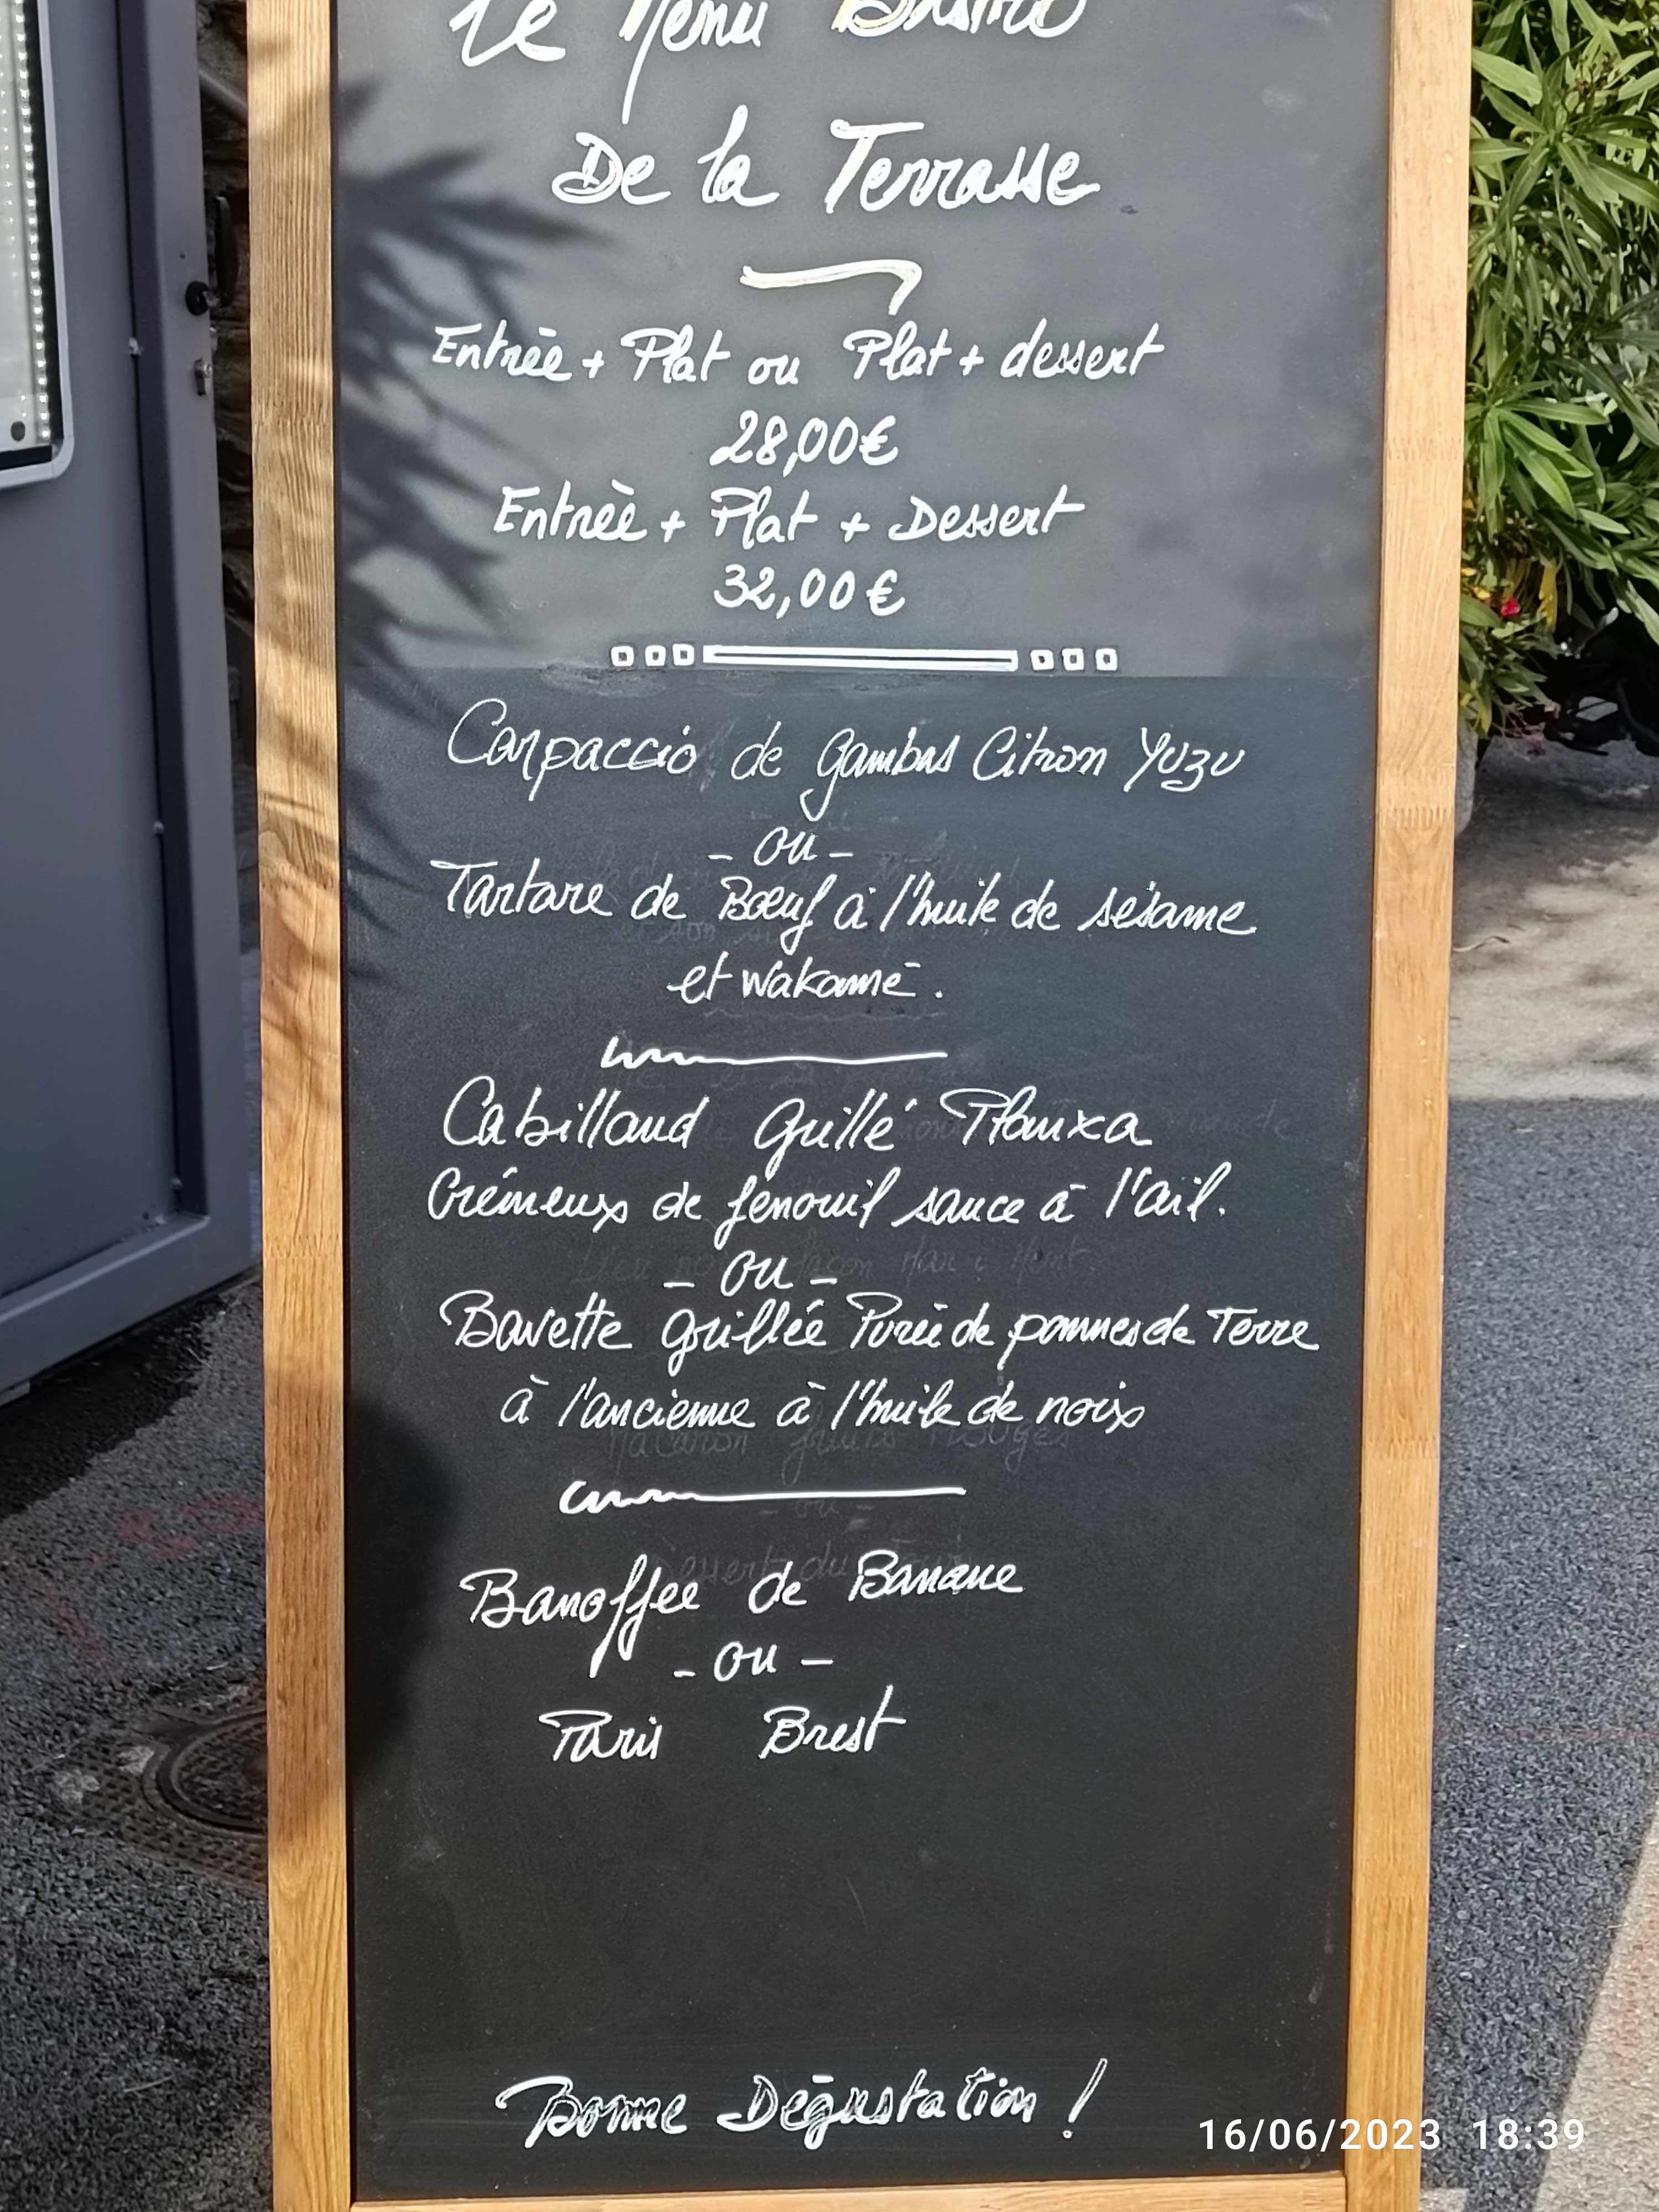 Le Menu Bistro
De la Terrasse
Entrée + Plat ou Plat + dessert
28,00€
Entrée + Plat + Dessert
32,00€
Carpaccio de gambas Citron Yuzu
- ou -
Tartare de Bœuf à l'huile de sésame
et wakamé.
Cabillaud Grillé Planxa
Crémeux de fenouil sauce à l'ail.
- ou -
Bavette grillée Purée de pommes de Terre
à l'ancienne à l'huile de noix
Banoffee de Banane
- ou -
Paris Brest
Bonne Dégustation !
16/06/2023 18:39